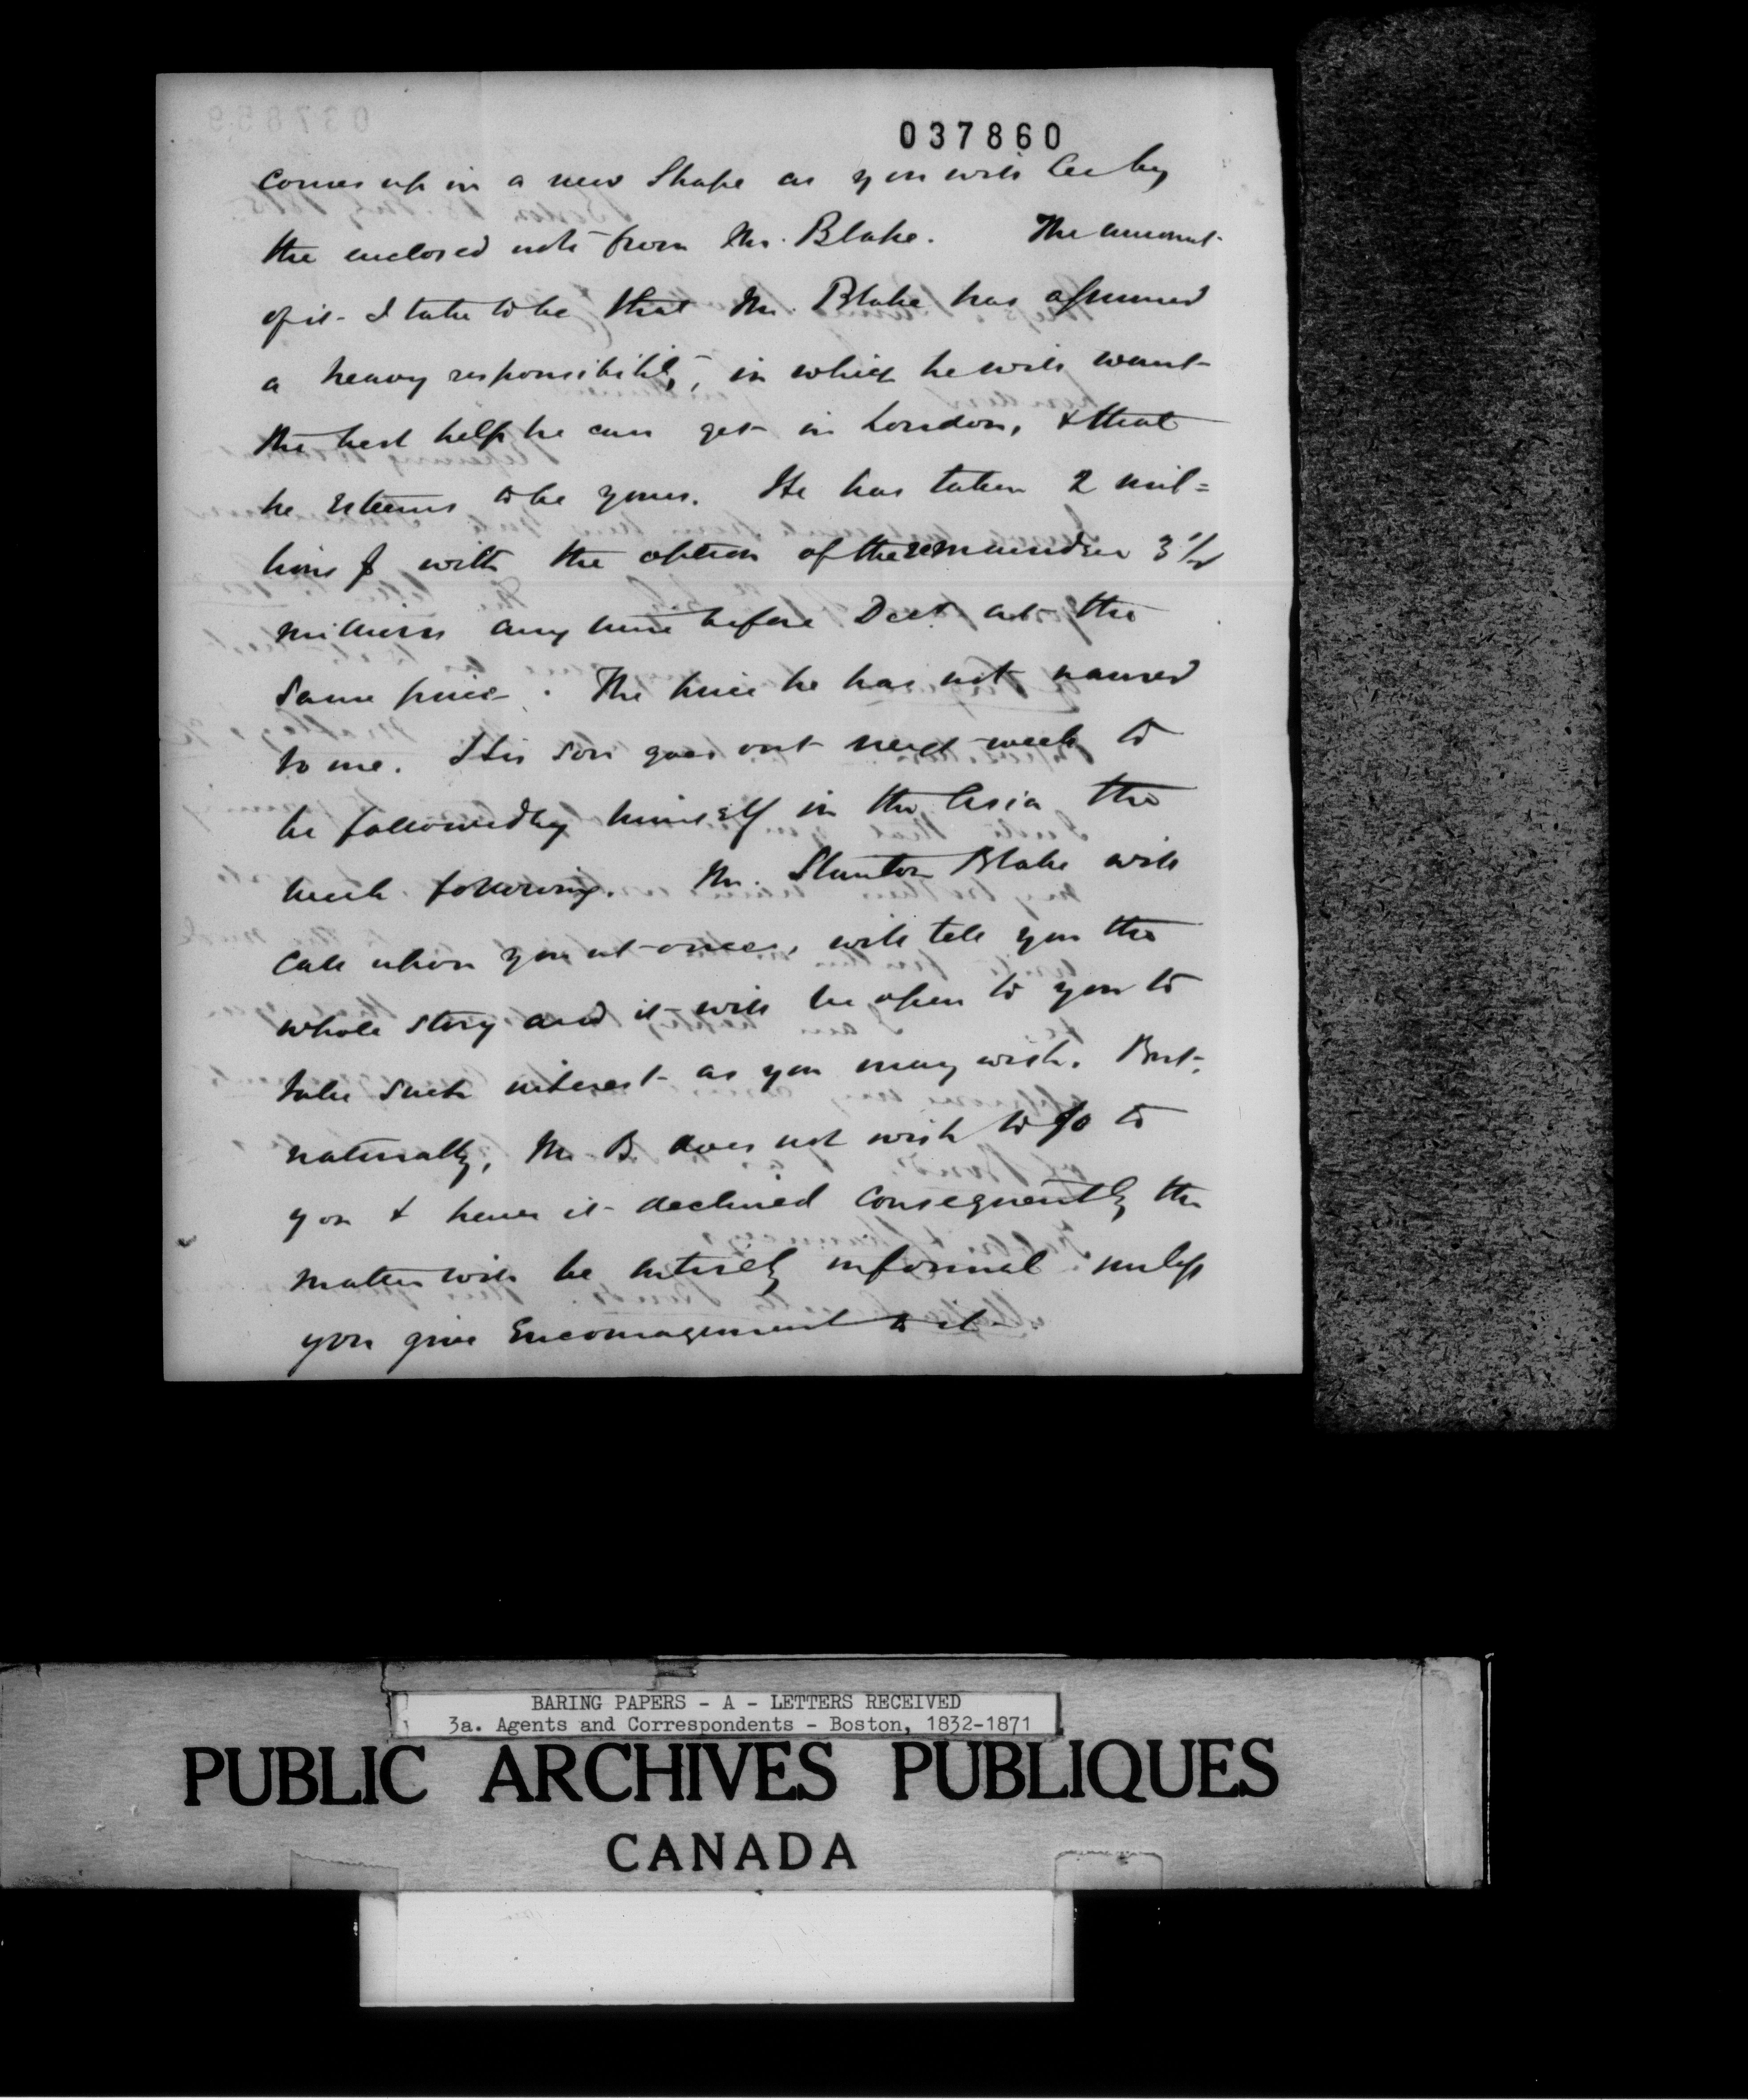 037860
comes up in a new Shape as you will see by
the enclosed note from Mr. Blake. The amount
of it I take to be that Mr. Blake has assumed
a heavy responsibility, in which he will want
the best help he can get in London, & that
he esteems to be yours. He has taken 2 mil=
lions $ with the option of the remainder 3 1/2
millions any time before Oct. at the
same price. The price he has not named
to me. His son goes out next week to
be followed by himself in the Asia the
week following. Mr. Stanton Blake will
call upon you at once, will tell you the
whole story and it will be open to you to
take such interest as you may wish. But,
naturally, Mr B. does not wish to go to
you & have it declined consequently the
matter will be entirely informal unless
you give Encouragement to it
BARING PAPERS - A - LETTERS RECEIVED
3a. Agents and Correspondents - Boston, 1832-1871
PUBLIC ARCHIVES PUBLIQUES
CANADA